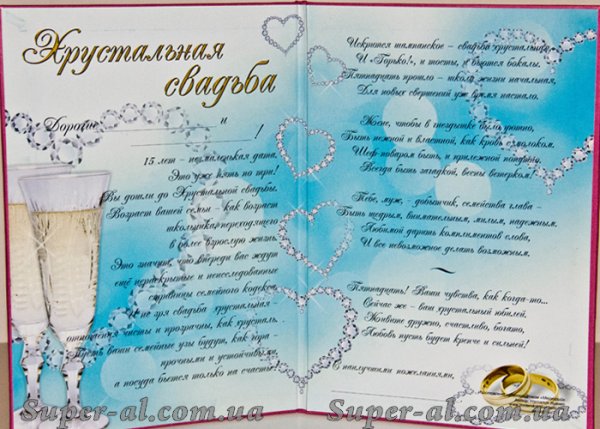 Хрустальная
свадьба
Дорогие и
!
15 лет - немаленькая дата.
Это уже пять по три!
Вы дошли до Хрустальной свадьбы.
Возраст вашей семьи - как возраст
школьника, переходящего
в более взрослую жизнь.
Это значит, что впереди вас ждут
ещё нераскрытые и неисследованные
страницы семейного кодекса.
И не зря свадьба хрустальная -
отношения чисты и прозрачны, как хрусталь.
Пусть ваши семейные узы будут, как гора -
прочными и устойчивыми,
а посуда бьется только на счастье!
Искрится шампанское - свадьба хрустальная,
И «Горько!», и тосты, и бьются бокалы.
Пятнадцать прошло - школа жизни начальная,
Для новых свершений уж время настало.
Жене, чтобы в гнездышке было уютно,
Быть нежной и властной, как кровь с молоком.
Шеф-поваром быть, и прилежной
Всегда быть загадкой, весны ветерком!
Тебе, муж, - добытчик, семейства глава -
Быть щедрым, внимательным, милым, надежным.
Любимой дарить комплиментов слова,
И все невозможное делать возможным.
~
Пятнадцать! Ваши чувства, как когда-то...
Сейчас же - ваш хрустальный юбилей.
Живите дружно, счастливо, богато,
Любовь пусть будет крепче и сильней!
С наилучшими пожеланиями,
Super-al.com.ua Super-al.com.ua